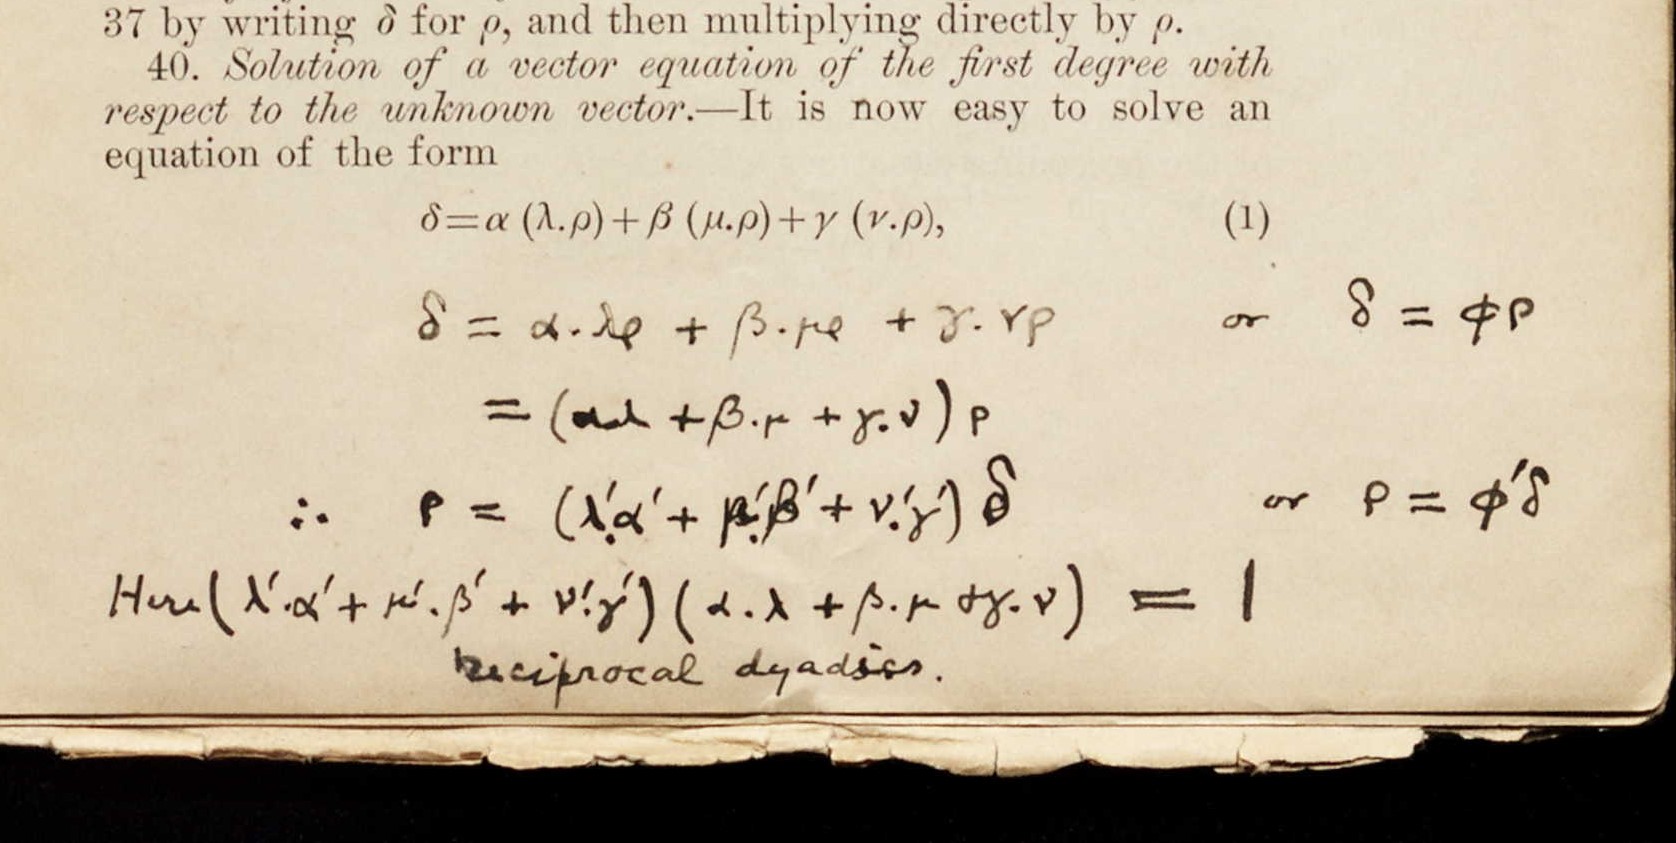 37 by writing δ for ρ, and then multiplying directly by ρ.
40. Solution of a vector equation of the first degree with
respect to the unknown vector.—It is now easy to solve an
equation of the form
δ=α (λ.ρ)+β (μ.ρ)+γ (ν.ρ), (1)
δ = α.λρ + β.μρ + γ.νρ or δ = φρ
= (α.λ + β.μ + γ.ν) ρ
∴ ρ = (λ'.α' + μ'.β' + ν'.γ') δ or ρ = φ'δ
Here (λ'.α' + μ'.β' + ν'.γ') (α.λ + β.μ + γ.ν) = 1
reciprocal dyadics.